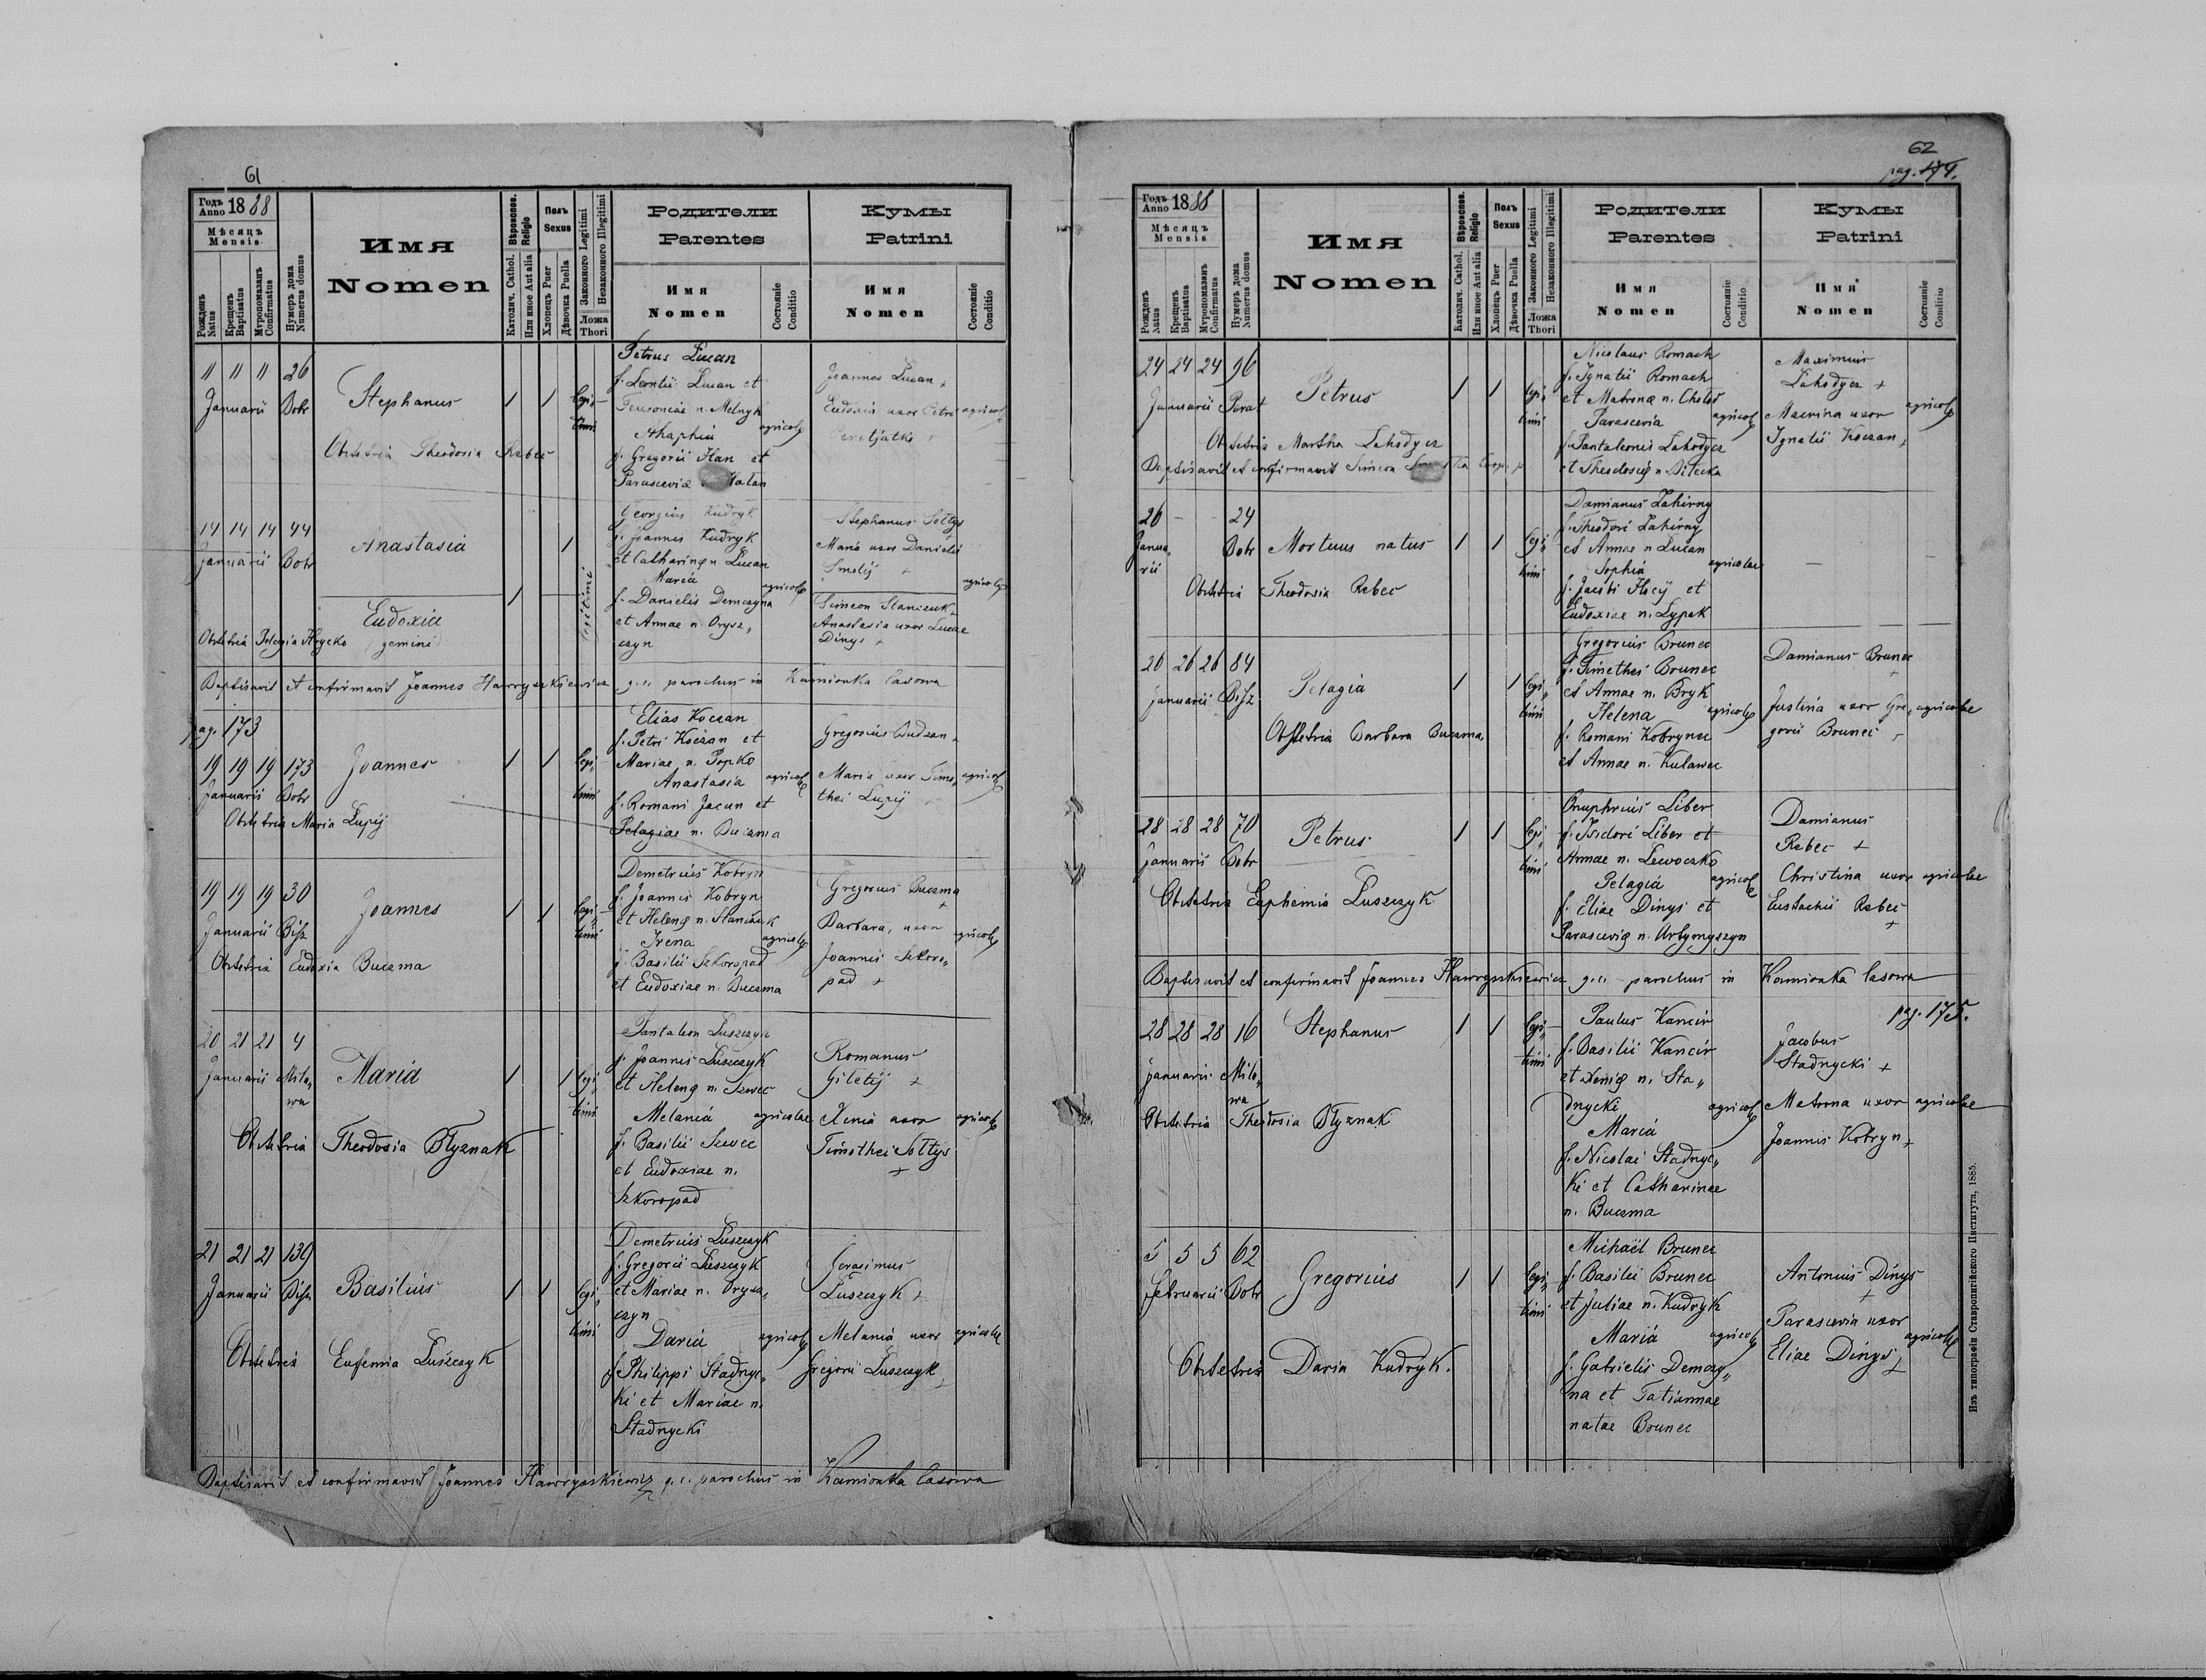 61
Годъ Anno 1888
Мѣсяцъ Mensis
Рожденъ Natus
Крещенъ Baptisatus
Мѵропомазанъ Confirmatus
Нумеръ дома Numerus domus
Имя Nomen
Вѣроиспов. Religio
Католич. Cathol.
Или иное Aut alia
Полъ Sexus
Хлопецъ Puer
Дѣвочка Puella
Законного Legitimi
Незаконного Illegitimi
Ложа Thori
Родители Parentes
Имя Nomen
Состояніе Conditio
Кумы Patrini
Имя Nomen
Состояніе Conditio
11 11 11 26
Januarii Dobr
Stephanus
1 1 legi-
timi
Petrus Lucan
f. Leontii Lucan et
Feuroniae n. Melnyk
Ahaphia
f. Gregorii Han et
Parasceviae
agricolae
Joannes Lucan +
Eudoxia uxor Petri
agricolae
Obstetrix Theodosia Rebec
14 14 14 44
Januarii Dobr
Anastasia
1
Eudoxia
(gemini)
1
legitimi
Georgius Kudryk
f. Joannis Kudryk
et Catharinae n. Lucan
Maria
f. Danielis Demczyna
et Annae n. Orysz„
czyn
agricolae
Stephanus Soltys
Maria uxor Danielis
Smolij +
Simeon Stanczuk +
Anastasia uxor Lucae
Dinys +
agricolae
Obstetrix Pelagia Hrycko
Baptisavit et confirmavit Joannes Hawryszkiewicz g. c. parochus in Kamionka lasowa
pag. 173
19 19 19 173
Januarii Dobr
Joannes
1 1 legi„
timi
Elias Koczan
f. Petri Koczan et
Mariae n. Popko
Anastasia
f. Romani Jacun et
Pelagiae n. Buczma
agricolae
Gregorius Dudzan +
Maria uxor Timo„
thei Lupij +
agricolae
Obstetrix Maria Lupij
19 19 19 30
Januarii Bisz
Joannes
1 1 legi„
timi
Demetrius Kobryn
f. Joannis Kobryn
et Helenae n. Stanczuk
Irena
f. Basilii Szkoropad
et Eudoxiae n. Buczma
agricolae
Gregorius Buczma
+
Barbara, uxor
Joannis Szkoro„
pad +
agricolae
Obstetrix Eudoxia Buczma
20 21 21 4
Januarii Mila„
wa
Maria
1 1 legi„
timi
Pantaleon Luszczyk
f. Joannis Luszczyk
et Helenae n. Szwec
Melania
f. Basilii Szewec
et Eudoxiae n.
Szkoropad
agricolae
Romanus
Giletij +
Xenia uxor
Timothei Soltys
+
agricolae
Obstetrix Theodosia Blyznak
21 21 21 139
Januarii Bisz
Basilius
1 1 legi„
timi
Demetrius Luszczyk
f. Gregorii Luszczyk
et Mariae n. Orysz„
czyn
Daria
f. Philippi Stadnyc„
ki et Mariae n.
Stadnycki
agricolae
Gerasimus
Luszczyk +
Melania uxor
Gregorii Luszczyk
+
agricolae
Obstetrix Eufemia Luszczyk
Baptisavit et confirmavit Joannes Hawryszkiewicz g. c. parochus in Kamionka lasowa
62
pag. 174.
Годъ Anno 1888
Мѣсяцъ Mensis
Рожденъ Natus
Крещенъ Baptisatus
Мѵропомазанъ Confirmatus
Нумеръ дома Numerus domus
Имя Nomen
Вѣроиспов. Religio
Католич. Cathol.
Или иное Aut alia
Полъ Sexus
Хлопецъ Puer
Дѣвочка Puella
Законного Legitimi
Незаконного Illegitimi
Ложа Thori
Родители Parentes
Имя Nomen
Состояніе Conditio
Кумы Patrini
Имя Nomen
Состояніе Conditio
24 24 24 96
Januarii
Petrus
1 1 legi„
timi
Nicolaus Romach
f. Ignatii Romach
et Matronae n.
Parascevia
f. Pantaleonis Lahodycz
et Theodosiae n. Bilecka
agricolae
Maximus
Lahodycz +
Macrina uxor
Ignatii Koczan +
agricolae
Obstetrix Martha Lahodycz
Baptisavit et confirmavit Simeon
26 - - 24
Janua„
rii
Dobr
Mortuus natus
1 1 legi„
timi
Damianus Zahirny
f. Theodori Zahirny
et Annae n Lucan
Sophia
f. Jacobi Ilscij et
Eudoxiae n. Lypak
agricolae
—
Obstetrix Theodosia Rebec
26 26 26 84
Januarii Bisz
Pelagia
1 1 legi„
timi
Gregorius Brunec
f. Timothei Brunec
et Annae n. Bryk
Helena
f. Romani Kobryncz
et Annae n. Kulawec
agricolae
Damianus Brunec
+
Justina uxor Gre„
gorii Brunec +
agricolae
Obstetrix Barbara Buczma
28 28 28 70
Januarii Dobr
Petrus
1 1 legi„
timi
Onuphrius Liber
f. Isidori Liber et
Annae n. Lewoczko
Pelagia
f. Eliae Dinys et
Parasceviae n. Artymyszyn
agricolae
Damianus
Rebec +
Christina uxor
Eustachii Rebec
+
agricolae
Obstetrix Euphemia Luszczyk
Baptisavit et confirmavit Joannes Hawryszkiewicz g. c. parochus in Kamionka lasowa
pag. 175.
28 28 28 16
Januarii Mila„
wa
Stephanus
1 1 legi„
timi
Paulus Kancir
f. Basilii Kancir
et Xeniae n. Sta„
dnycki
Maria
f. Nicolai Stadnyc„
ki et Catharinae
n. Buczma
agricolae
Jacobus
Stadnycki +
Matrona uxor
Joannis Kobryn +
agricolae
Obstetrix Theodosia Blyznak
5 5 5 62
Februarii Dobr
Gregorius
1 1 legi„
timi
Michaël Brunec
f. Basilii Brunec
et Juliae n. Kudryk
Maria
f. Gabrielis Demczy„
na et Tatiannae
natae Brunec
agricolae
Antonius Dinys
+
Parascevia uxor
Eliae Dinys
+
agricolae
Obstetrix Daria Kudryk.
Изъ типографіи Ставропигійского Института, 1885.